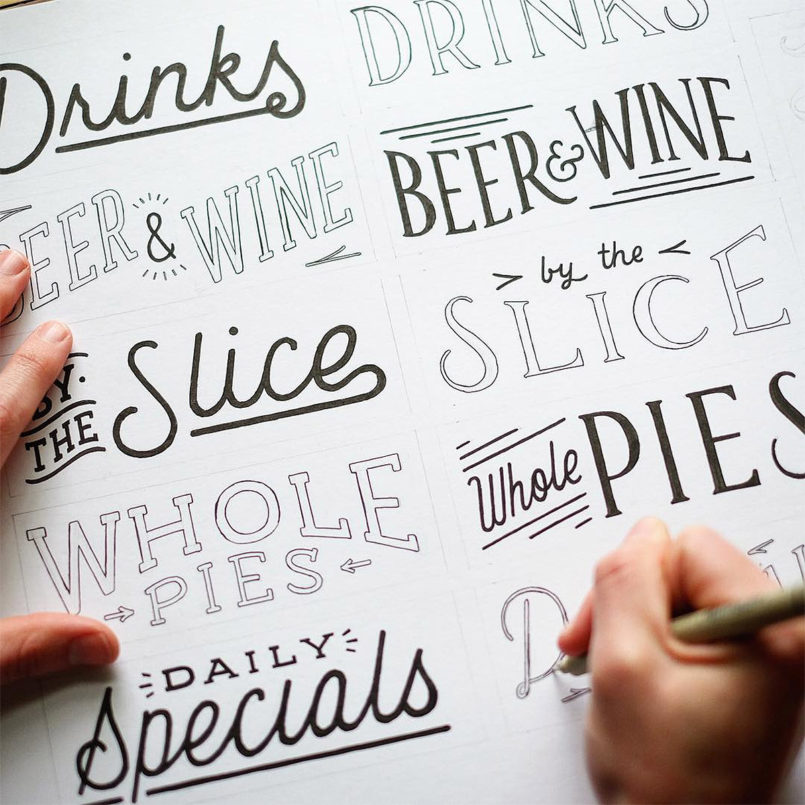 Drinks
DRINKS
BEER & WINE
BEER & WINE
BY·
THE
Slice
by the
SLICE
WHOLE
PIES
Whole PIES
DAILY
Specials
D